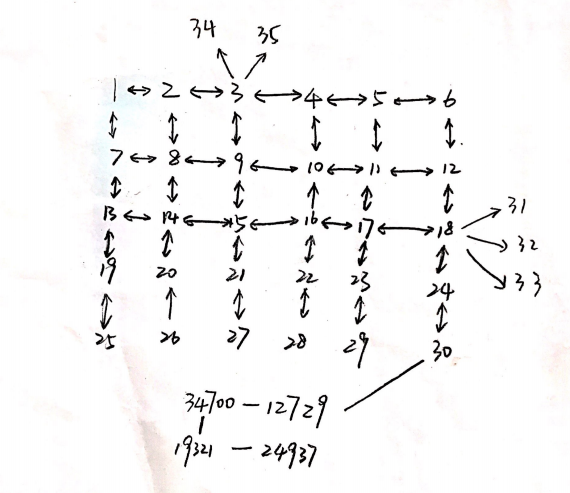 34 35
1 ↔ 2 ↔ 3 ↔ 4 ↔ 5 ↔ 6
7 ↔ 8 ↔ 9 ↔ 10 ↔ 11 ↔ 12
13 ↔ 14 ↔ 15 ↔ 16 ↔ 17 ↔ 18 31
32
19 20 21 22 23 24 33
25 26 27 28 29 30
34700 — 12729
19321 — 24937